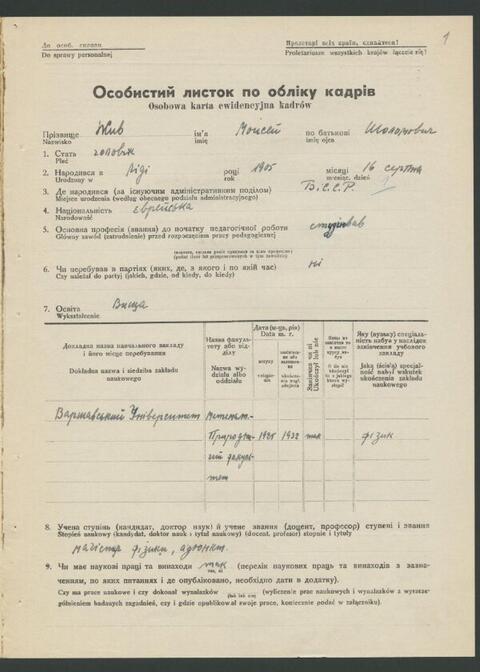 1
До особ. справи
Do sprawy personalnej
Пролетарі всіх країн, єднайтеся!
Proletariusze wszystkich krajów łączcie się!
Особистий листок по обліку кадрів
Osobowa karta ewidencyjna kadrów
Прізвище Жив ім'я Мойсей по батькові Шоломович
Nazwisko imię imię ojca
1. Стать чоловік
Płeć
2. Народився в Ліді році 1905 місяці 16 серпня
Urodzony w rok miesiąc, dzień
3. Де народився (за існуючим адміністративним поділом) Б.С.С.Р.
Miejsce urodzenia (według obecnego podziału administracyjnego)
4. Національність єврейська
Narodowość
5. Основна професія (звання) до початку педагогічної роботи студіював
Główny zawód (zatrudnienie) przed rozpoczęciem pracy pedagogicznej
6. Чи перебував в партіях (яких, де, з якого і по який час) ні
Czy należał do partyj (jakich, gdzie, od kiedy, do kiedy)
7. Освіта Вища
Wykształcenie
Докладна назва навчального закладу і його місце перебування
Dokładna nazwa i siedziba zakładu naukowego
Назва факультету або відділу
Nazwa wydziału albo oddziału
Дата (м-ця, рік)
Data m. r.
вступу
Закінчив чи ні
Ukończył lub nie
Яку (вузьку) спеціальність набув у наслідок закінчення учбового закладу
Jaką (ścisłą) specjalność nabył wskutek ukończenia zakładu naukowego
Варшавський Університет Математ.
Природни- 1925 1932 так фізик
чий факуль-
тет
8. Учена ступінь (кандидат, доктор наук) й учене звання (доцент, професор) ступені і звання
Stopień naukowy (kandydat, doktor nauk i tytuł naukowy) (docent, profesor) stopnie i tytuły
магістр фізики, адюнкт.
9. Чи має наукові праці та винаходи так (перелік наукових праць та винаходів з зазначен-
ням, по яких питаннях і де опубліковано, необхідно дати в додатку).
Czy ma prace naukowe i czy dokonał wynalazków (wyliczenie prac naukowych i wynalazków z wyszcze-
gólnieniem badanych zagadnień, czy i gdzie opublikował swoje prace, koniecznie podać w załączniku).